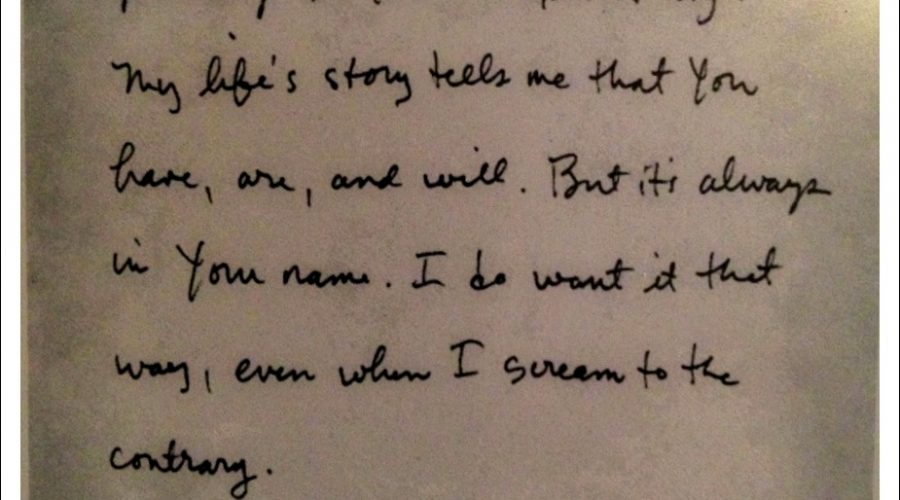 My life's story tells me that You
have, are, and will. But it's always
in Your name. I do want it that
way, even when I scream to the
contrary.